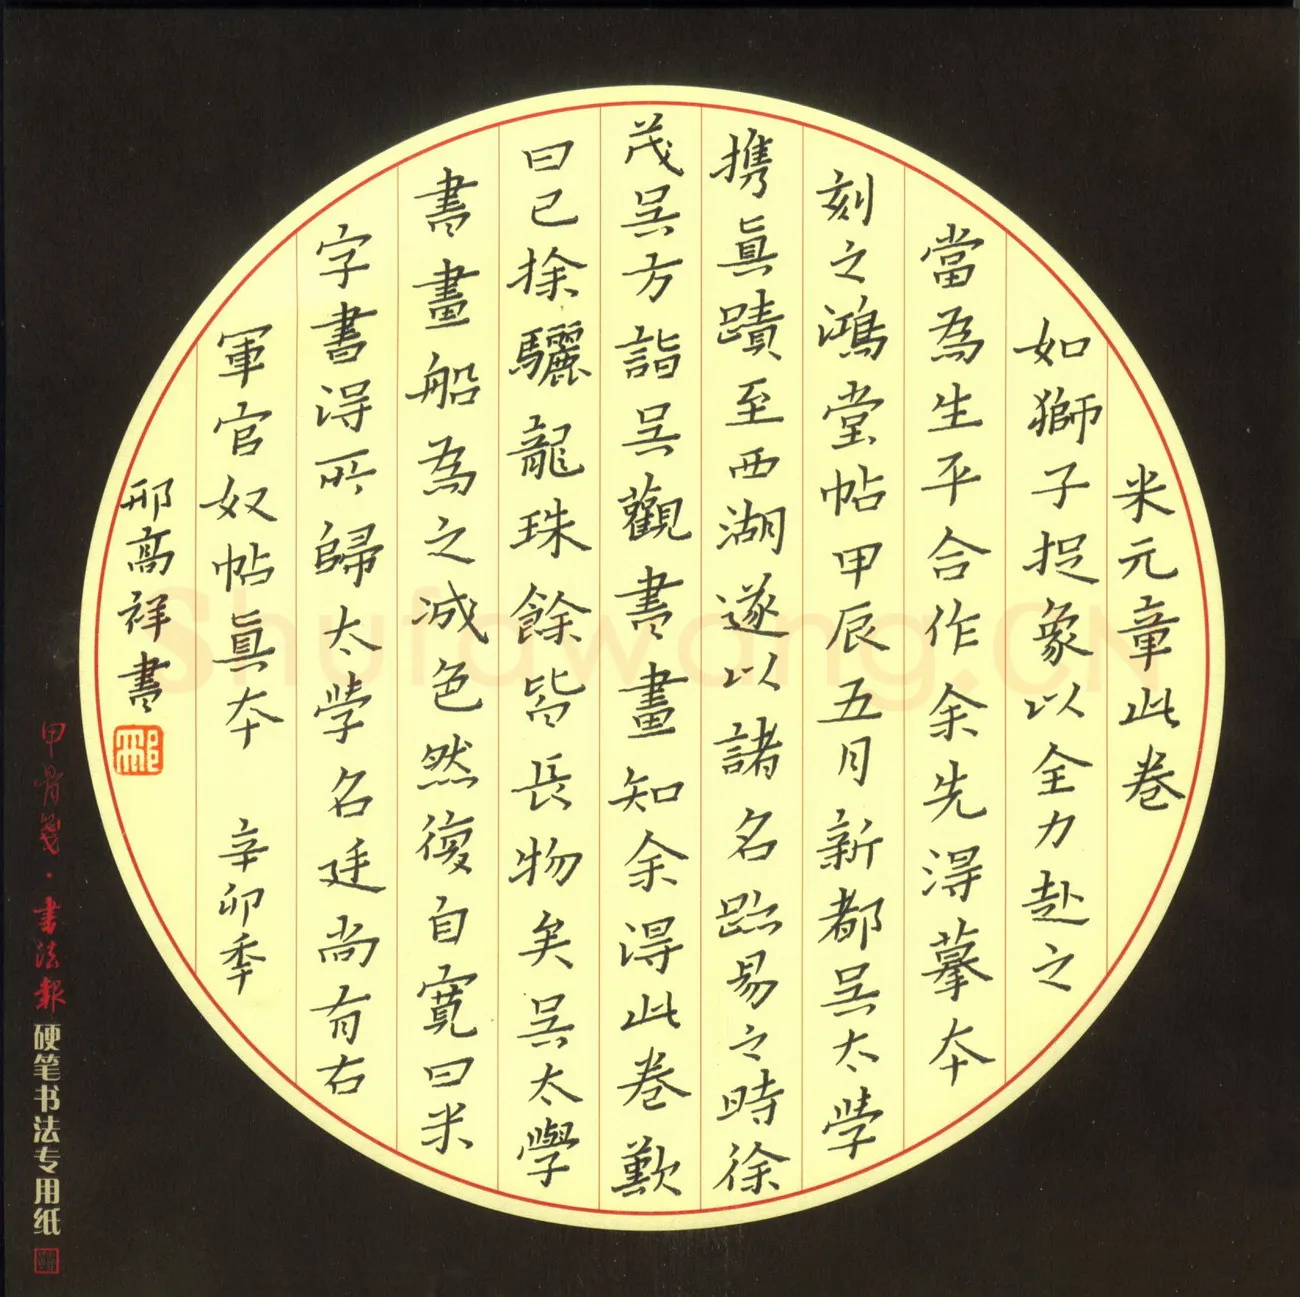 米元章此卷
如獅子捉象以全力赴之
當為生平合作余先得摹本
刻之鴻堂帖甲辰五月新都吳太學
携真蹟至西湖遂以諸名跡易之時徐
茂吳方詣吳觀書畫知余得此卷歎
曰已探驪龍珠餘皆長物矣吳太學
書畫船為之減色然復自寬曰米
字書得所歸太學名廷尚有右
軍官奴帖真本 辛卯季
邢高祥書
邢
甲骨箋·书法報
硬笔书法专用纸
Shufawang.CN